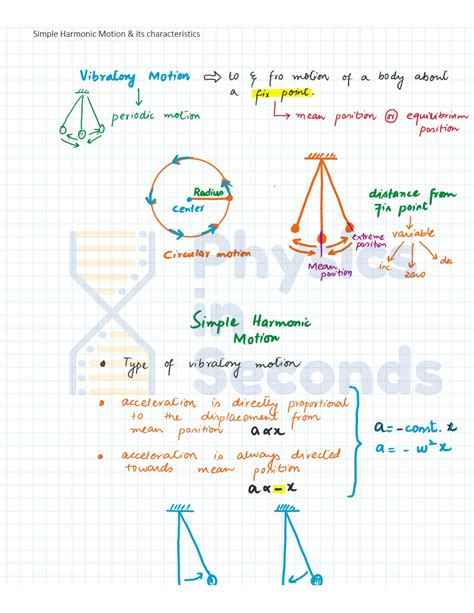 Simple Harmonic Motion & its characteristics
Vibratory Motion ⇒ to & fro motion of a body about
a fix point.
periodic motion
mean position or equilibrium
position
Radius
center
Circular motion
distance from
fix point
variable
inc
zero
dec
extreme
position
Mean
position
Physics
in
Seconds
Simple Harmonic
Motion
• Type of vibratory motion
• acceleration is directly proportional
to the displacement from
mean position a ∝ x
• acceleration is always directed
towards mean position
a ∝ - x
a = - const. x
a = - w² x